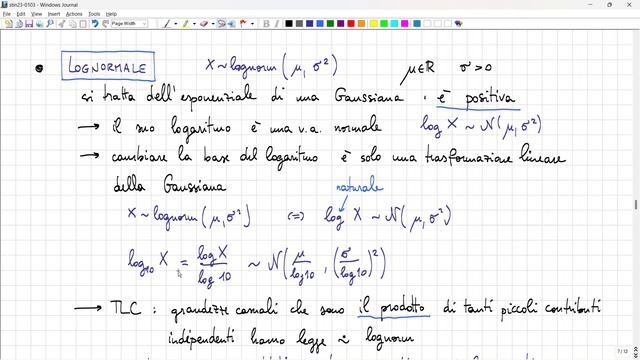 stin23-0103 - Windows Journal
File Edit View Insert Actions Tools Help
Page Width
• LOGNORMALE X ~ lognorm (μ, σ²) μ∈ℝ σ>0
si tratta dell'esponenziale di una Gaussiana. è positiva
→ il suo logaritmo è una v.a. normale log X ~ N(μ, σ²)
→ cambiare la base del logaritmo è solo una trasformazione lineare
della Gaussiana
naturale
X ~ lognorm (μ, σ²) (=) log X ~ N(μ, σ²)
log₁₀ X = log X / log 10 ~ N(μ/log 10, (σ/log 10)²)
→ TLC : grandezze casuali che sono il prodotto di tanti piccoli contributi
indipendenti hanno legge ≈ lognorm
7 / 12